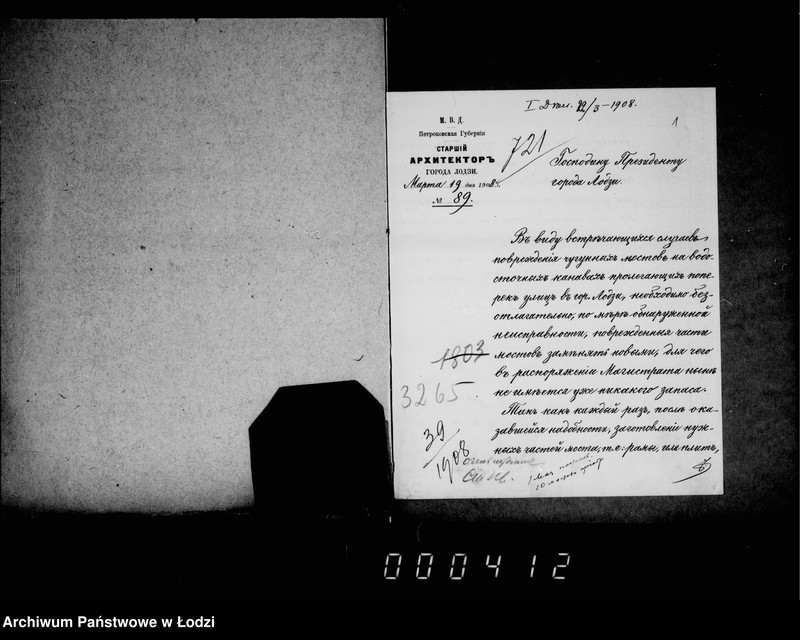 I Дѣл. 22/3-1908.
1
М. В. Д.
Петроковская Губернія
СТАРШІЙ
АРХИТЕКТОРЪ
ГОРОДА ЛОДЗИ.
Марта 19 дня 1908 г.
№ 89.
721
Господину Президенту
города Лодзи.
Въ виду встрѣчающихся случаевъ
поврежденія чугунныхъ мостовъ на водо-
сточныхъ канавахъ пролегающихъ попе-
рекъ улицъ въ гор. Лодзи, необходимо без-
отлагательно, по мѣрѣ обнаруженной
неисправности, поврежденныя части
мостовъ замѣнять новыми, для чего
въ распоряженіи Магистрата нынѣ
не имѣется уже никакого запаса.
Такъ какъ каждый разъ, послѣ ока-
завшейся надобности, заготовленіе нуж-
ныхъ частей моста, т.е: рамы, или плитъ,
1803
3265
39/1908
000412
Archiwum Państwowe w Łodzi